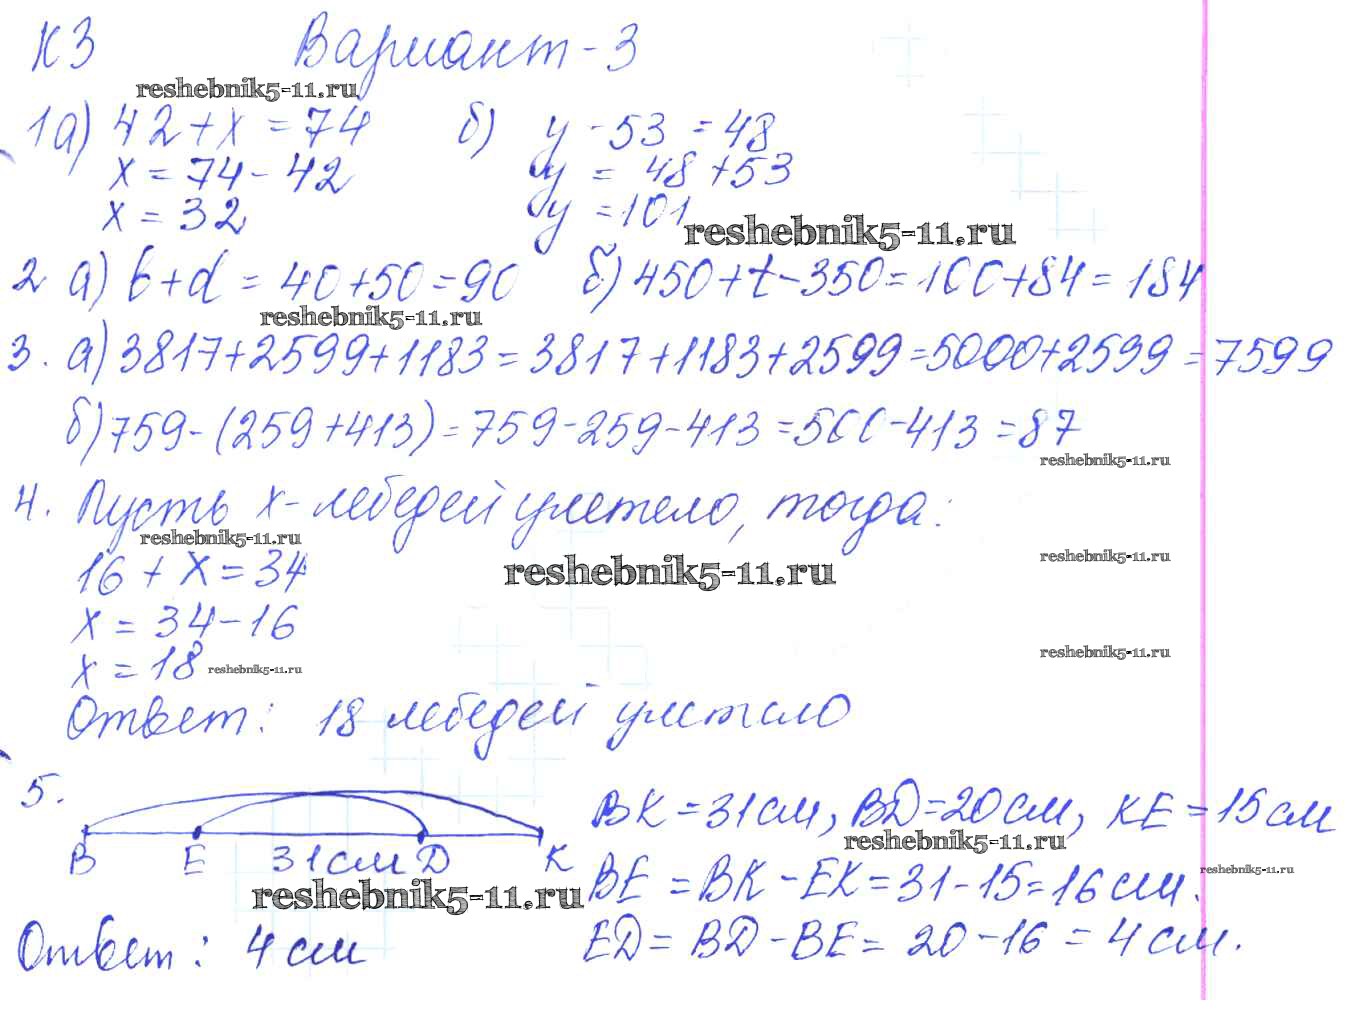 К3 Вариант-3
reshebnik5-11.ru
1а) 42+х=74 б) у-53=48
х=74-42 у=48+53
х=32 у=101
reshebnik5-11.ru
2 а) b+d=40+50=90 б) 450+t-350=100+84=184
reshebnik5-11.ru
3. а) 3817+2599+1183=3817+1183+2599=5000+2599=7599
б) 759-(259+413)=759-259-413=500-413=87
reshebnik5-11.ru
4. Пусть х-лебедей улетело, тогда:
reshebnik5-11.ru
16+х=34
reshebnik5-11.ru
reshebnik5-11.ru
х=34-16
reshebnik5-11.ru
х=18
reshebnik5-11.ru
Ответ: 18 лебедей улетело
5.
BK=31см, BD=20см, KE=15см
reshebnik5-11.ru
B E 31см D K
reshebnik5-11.ru
BE=BK-EK=31-15=16см.
reshebnik5-11.ru
ED=BD-BE=20-16=4см.
Ответ: 4см